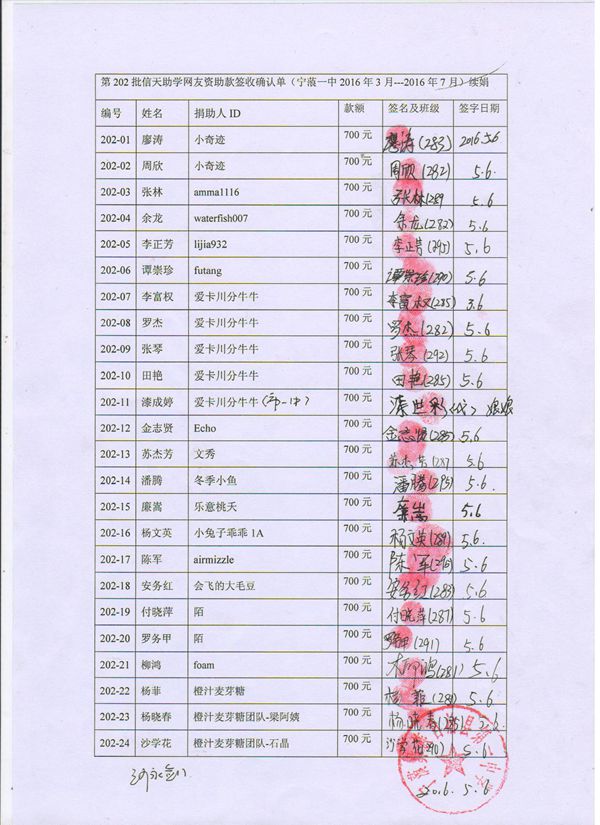 第 202 批信天助学网友资助款签收确认单（宁蒗一中 2016 年 3 月---2016 年 7 月）续娟
编号 姓名 捐助人 ID 款额 签名及班级 签字日期
202-01 廖涛 小奇迹 700 元 廖涛(283) 2016.5.6
202-02 周欣 小奇迹 700 元 周欣(282) 5.6.
202-03 张林 amma1116 700 元 张林(289 5.6
202-04 余龙 waterfish007 700 元 余龙(282) 5.6
202-05 李正芳 lijia932 700 元 李正芳(295) 5.6
202-06 谭崇珍 futang 700 元 谭崇珍(290) 5.6
202-07 李富权 爱卡川分牛牛 700 元 李富权(285) 5.6
202-08 罗杰 爱卡川分牛牛 700 元 罗杰(282) 5.6
202-09 张琴 爱卡川分牛牛 700 元 张琴(292) 5.6
202-10 田艳 爱卡川分牛牛 700 元 田艳(285) 5.6
202-11 漆成婷 爱卡川分牛牛 700 元
202-12 金志贤 Echo 700 元 金志贤(285) 5.6
202-13 苏杰芳 文秀 700 元 苏杰芳(287 5.6
202-14 潘腾 冬季小鱼 700 元 潘腾(295) 5.6.
202-15 廉嵩 乐意桃夭 700 元 廉嵩 5.6
202-16 杨文英 小兔子乖乖 1A 700 元 杨文英(289) 5.6
202-17 陈军 airmizzle 700 元 陈军(296) 5.6
202-18 安务红 会飞的大毛豆 700 元 安务红(283) 5.6
202-19 付晓萍 陌 700 元 付晓萍(287) 5.6
202-20 罗务甲 陌 700 元 (291) 5.6
202-21 柳鸿 foam 700 元 柳鸿(281) 5.6
202-22 杨菲 橙汁麦芽糖 700 元 杨菲(284) 5.6
202-23 杨晓春 橙汁麦芽糖团队-梁阿姨 700 元 杨晓春(285) 5.6.
202-24 沙学花 橙汁麦芽糖团队-石晶 700 元 沙学花(290) 5.6
2016.5.6